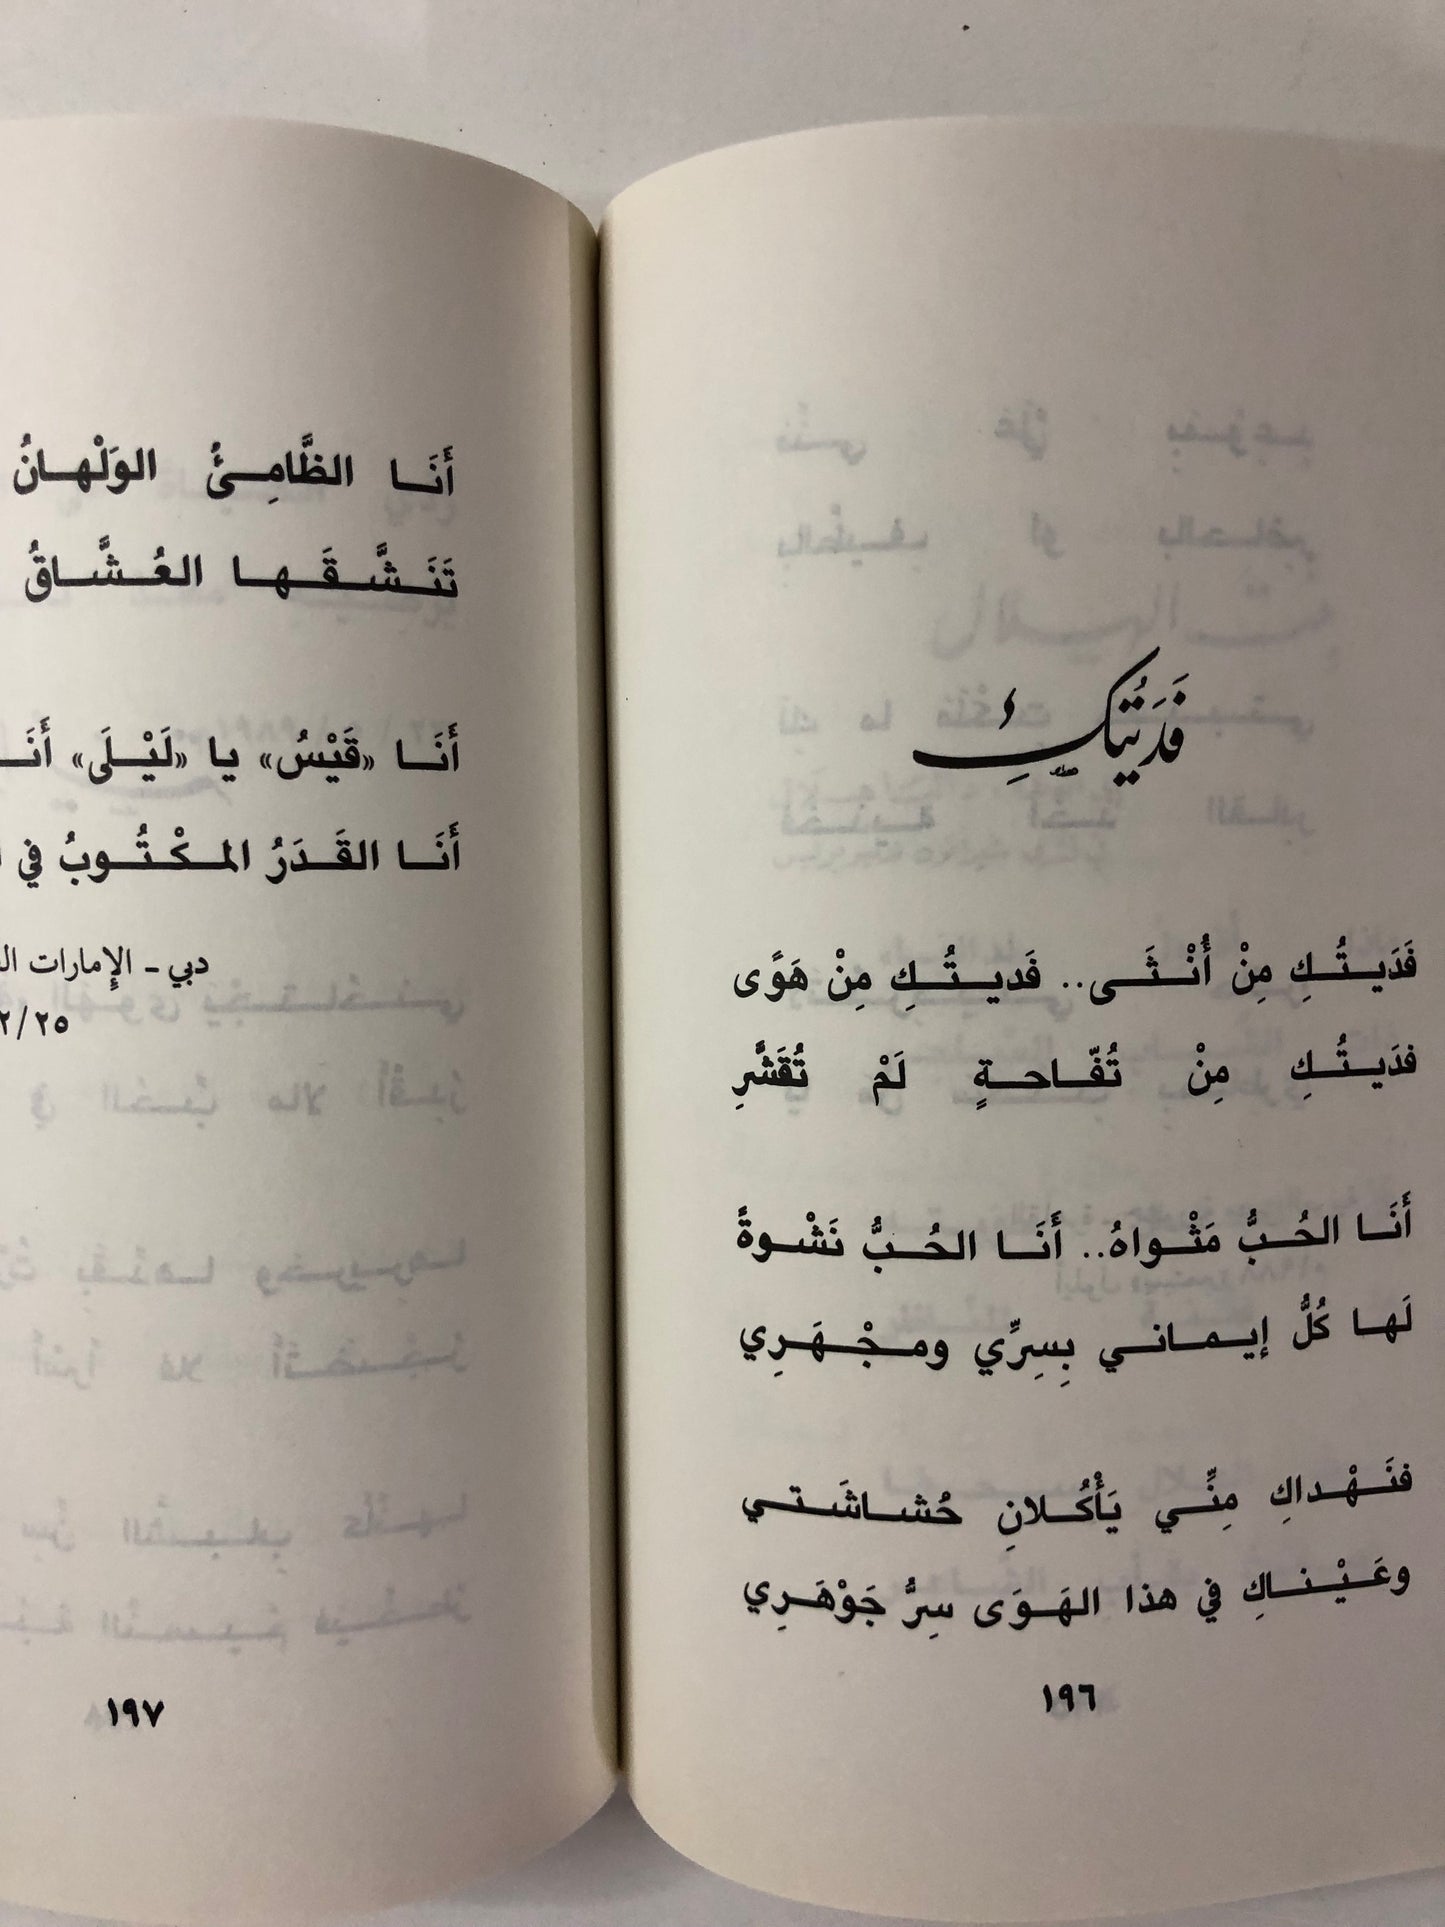 فَدَيتُكِ
فَدَيتُكِ مِنْ أُنْثَى.. فَديتُكِ مِنْ هَوًى
فدَيتُكِ مِنْ تُفّاحةٍ لَمْ تُقَشَّرِ
أَنَا الحُبُّ مَثْواهُ.. أَنَا الحُبُّ نَشْوةً
لَها كُلُّ إيماني بِسِرِّي ومجْهَرِي
فنَهْداكِ مِنِّي يَأْكُلانِ حُشاشَتي
وعَيْناكِ في هذا الهَوَى سِرُّ جَوْهَرِي
١٩٦
أَنَا الظَّامِئُ الوَلْهانُ
تَنَشَّقَها العُشَّاقُ
أَنَا «قَيْسُ» يا «لَيْلَى» أَنَا
أَنَا القَدَرُ المكْتُوبُ في
دبي - الإمارات
٢/٢٥
١٩٧